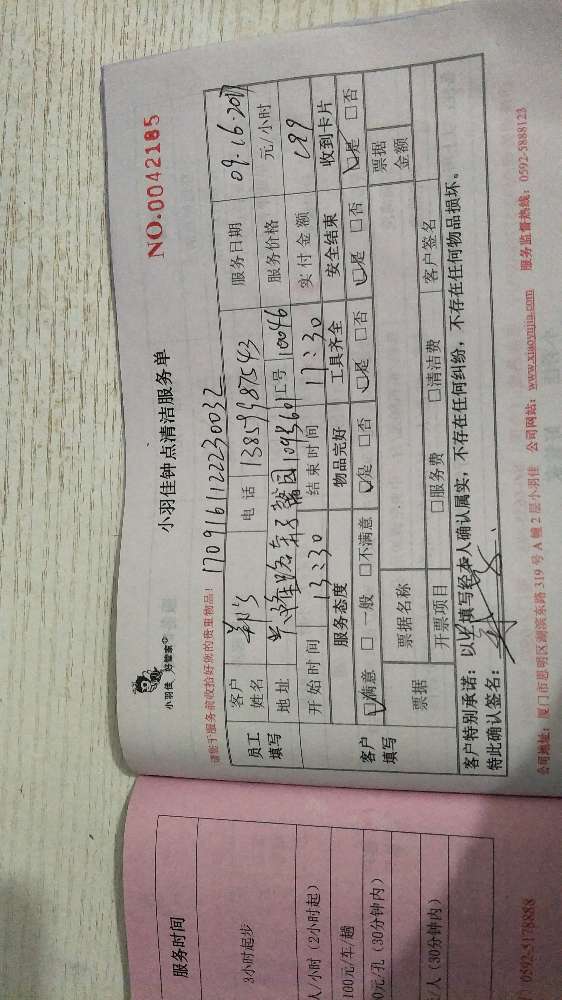 小羽佳 好管家
小羽佳钟点清洁服务单
NO.0042185
请您于服务前收拾好您的贵重物品!
170916112223003
员工填写
客户姓名
电话 13859987543
服务日期 09.16.2017
地址
工号 100046
服务价格 元/小时
开始时间 13:30
结束时间 17:30
实付金额 189
客户填写
服务态度 物品完好 工具齐全 安全结束 收到卡片
☑满意 □一般 □不满意 ☑是 □否 ☑是 □否 ☑是 □否 ☑是 □否
票据 票据名称 票据金额
开票项目 □服务费 □清洁费 客户签名
客户特别承诺:以上填写经本人确认属实,不存在任何纠纷,不存在任何物品损坏。
特此确认签名:
公司地址:厦门市思明区湖滨东路319号A幢2层小羽佳 公司网站:www.xiaoyujia.com 服务监督热线:0592-5888123
服务时间
3小时起步
人/小时(2小时起)
100元/车/趟
0元/孔(30分钟内)
/人(30分钟内)
0592-5178888